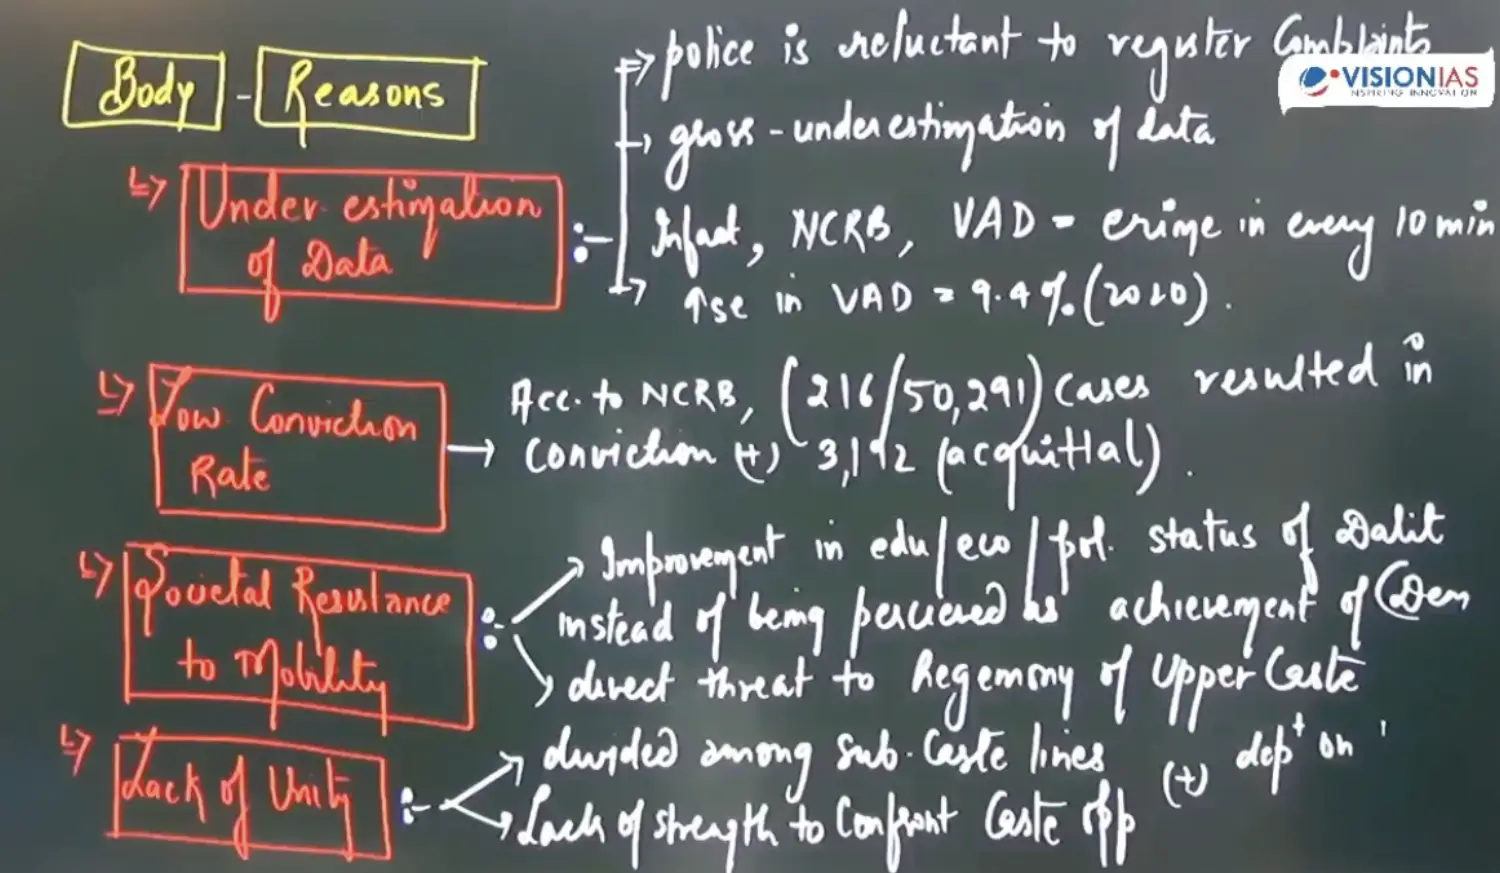 Body - Reasons
↳ Under estimation of Data :-
→ police is reluctant to register Complaints
→ gross - underestimation of data
Infact, NCRB, VAD = crime in every 10 min
→ ↑se in VAD = 9.4% (2020).
↳ Low Conviction Rate
→ Acc. to NCRB, (216/50,291) cases resulted in
conviction (+) 3,192 (acquittal).
↳ Societal Resistance to Mobility :-
Improvement in edu/eco/pol. status of Dalit
instead of being percieved as achievement of Dem
direct threat to Hegemony of Upper Caste
↳ Lack of Unity :-
divided among Sub-Caste lines
Lack of strength to Confront Caste opp (+) dept on
VISIONIAS
INSPIRING INNOVATION